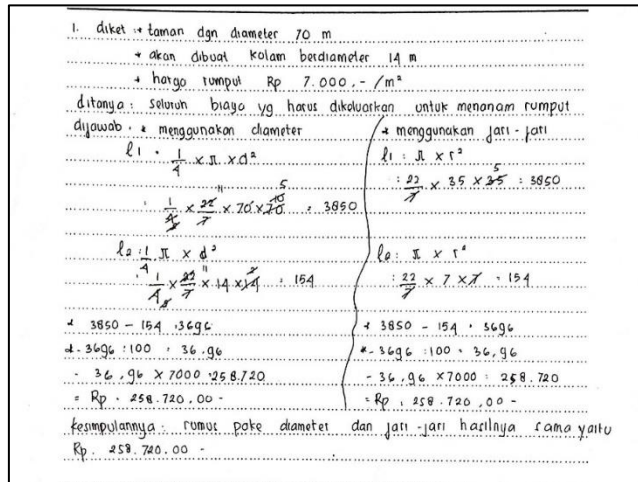 1. diket : * taman dgn diameter 70 m
* akan dibuat kolam berdiameter 14 m
* harga rumput Rp 7.000,- /m²
ditanya : seluruh biaya yg harus dikeluarkan untuk menanam rumput
dijawab : * menggunakan diameter
l1 : 1/4 x π x d²
: 1/4 x 22/7 x 70 x 70 = 3850
l2 : 1/4 π x d²
: 1/4 x 22/7 x 14 x 14 = 154
* 3850 - 154 = 3696
* - 3696 : 100 = 36,96
- 36,96 x 7000 = 258.720
= Rp. 258.720,00 -
* menggunakan jari - jari
l1 : π x r²
: 22/7 x 35 x 35 = 3850
l2 : π x r²
: 22/7 x 7 x 7 = 154
* 3850 - 154 = 3696
* - 3696 : 100 = 36,96
- 36,96 x 7000 = 258.720
= Rp. 258.720,00 -
kesimpulannya : rumus pake diameter dan jari -jari hasilnya sama yaitu
Rp. 258.720.00 -